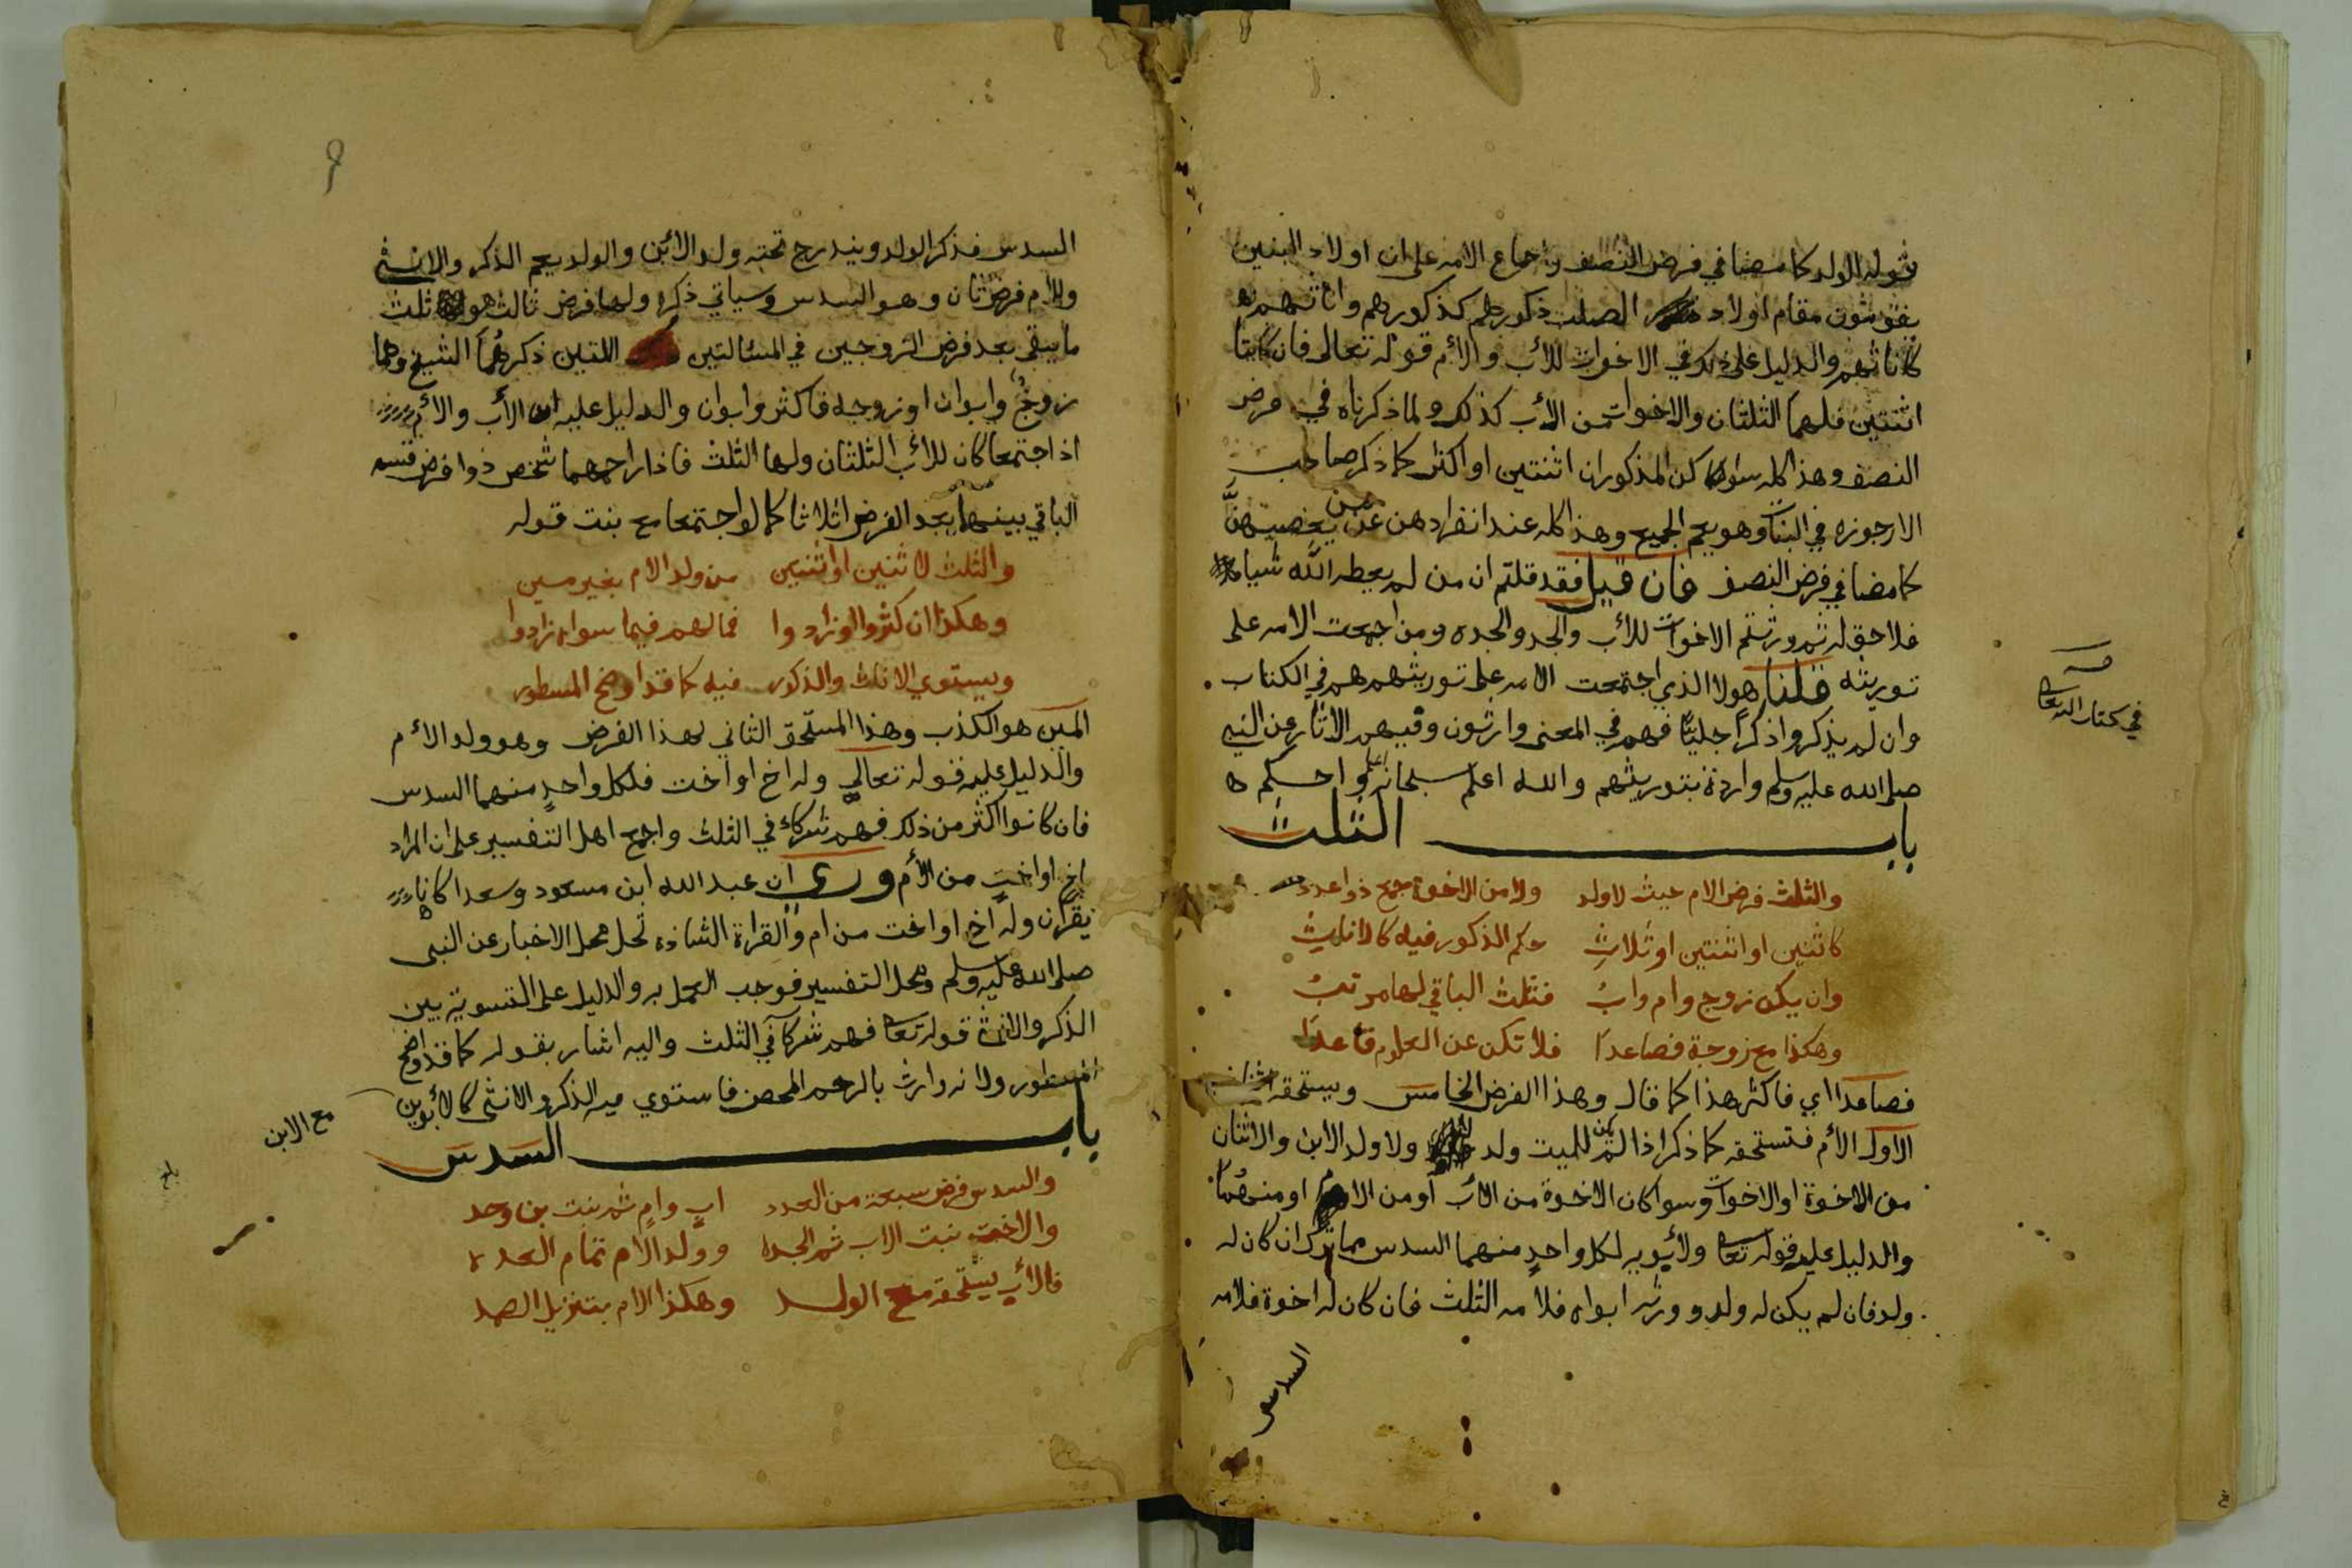 قوله الولد كما مضا في فرض النصف واجماع الامه على ان اولاد البنين
يقومون مقام اولاد الصلب ذكورهم كذكورهم واناثهم
كاناثهم والدليل على ذلك في الاخوات للأب والأم قوله تعالى فان كانتا
اثنتين فلهما الثلثان والاخوات من الأب كذلك ولما ذكرناه في فرض
النصف وهذا كله سوا كن المذكوران اثنتين او اكثر كما ذكر صاحب
الارجوزه في البنات وهو يعم الجميع وهذا كله عند انفرادهن عن من يعصبهنَّ
كما مضا في فرض النصف فان قيل فقد قلتم ان من لم يعطه الله شيا
فلا حق له ثم ورثتم الاخوات للأب والجد والجده ومن اجمعت الامه على
توريثه قلنا هولا الذي اجتمعت الامه على توريثهم هم في الكتاب
وان لم يذكروا ذكراً جليّاً فهم في المعنى وارثون وفيهم الاثار عن النبي
صلى الله عليه وسلم واردة بتوريثهم والله اعلم سبحانه اعلم واحكم
باب الثلث
والثلث فرض الام حيث لا ولد ولا من الاخوة جمع ذو اعدد
كاثنين او اثنتين او ثلاثِ حكم الذكور فيه كالاناثِ
وان يكن زوج وام وابُ فثلث الباقي لها مرتبُ
وهكذا مع زوجة فصاعدًا فلا تكن عن العلوم قاعدًا
فصاعدا اي فاكثر هذا كما قال وهذا الفرض الخامس ويستحقه اثنان
الاول الأم فتستحقه كما ذكر اذا لم يكن للميت ولد ولا ولد الابن والاثنان
من الاخوة او الاخوات وسوا كان الاخوة من الأب او من الام او منهما
والدليل عليه قوله تعا ولأبويه لكل واحدٍ منهما السدس مما ترك ان كان له
ولد فان لم يكن له ولد وورثه ابواه فلامه الثلث فان كان له اخوة فلامه
السدس
في كتاب الله تعا
السدس فذكر الولد ويندرج تحته ولد الابن والولد يعم الذكر والانثى
وللام فرض ثان وهو السدس وسياتي ذكره ولها فرض ثالث هو ثلث
ما يبقى بعد فرض الزوجين في المسئالتين اللتين ذكرهُما الشيخ وهما
زوجٌ وابوان او زوجة فاكثر وابوان والدليل عليه ان الأب والام
اذا اجتمعا كان للأب الثلثان ولها الثلث فاذا زاحمهما شخص ذوا فرض قسم
الباقي بينهما بعد الفرض اثلاثا كما لو اجتمعا مع بنت قوله
والثلث لاثنين او اثنتين من ولد الام بغير مين
وهكذا ان كثروا او زادوا فما لهم فيما سواه زادوا
ويستوي الاناث والذكور فيه كما قد اوضح المسطور
المين هو الكذب وهذا المستحق الثاني لهذا الفرض وهو ولد الأم
والدليل عليه قوله تعالى وله اخ او اخت فلكل واحدٍ منهما السدس
فان كانوا اكثر من ذلك فهم شركاء في الثلث واجمع اهل التفسير على ان المراد
اخ او اختٍ من الأم وروي ان عبد الله ابن مسعود وسعدا كانا
يقران وله اخ او اخت من ام والقراة الشاذه تحل محل الاخبار عن النبى
صلى الله عليه وسلم ومحل التفسير فوجب العمل به والدليل على التسوية بين
الذكر والانثى قوله تعا فهم شركآ في الثلث واليه اشار بقوله كما قد اوضح
المسطور ولانه وارث بالرحم المحض فاستوي فيه الذكر والانثى كالأبوين
مع الابن
باب السدس
والسدس فرض سبعة من العدد اب وام ثم بنت بن وجد
والاخت بنت الاب ثم الجدة وولد الام تمام العده
فالأب يستحقه مع الولد وهكذا الام بتنزيل الصمد